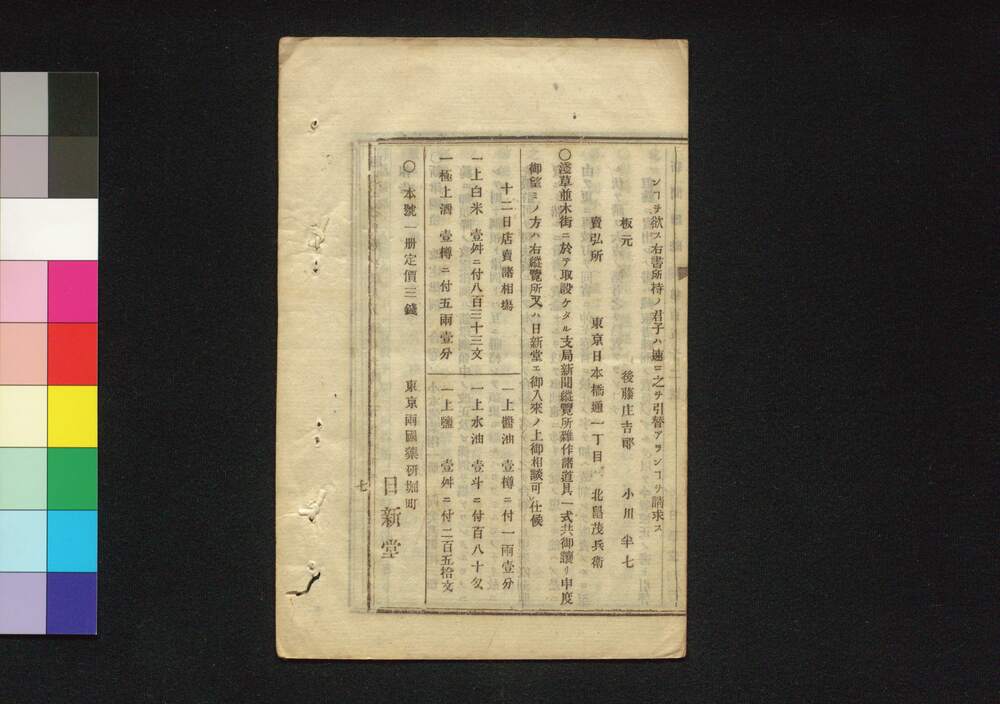 ンヿヲ欲ス右書所持ノ君子ハ速ニ之ヲ引替アランヿヲ請求ス
板元　後藤庄吉郎　小川半七
賣弘所　東京日本橋通一丁目　北畠茂兵衛
〇淺草並木街ニ於テ取設ケタル支局新聞縱覽所雜作諸道具一式共御讓リ申度
御望ミノ方ハ右縱覽所又ハ日新堂エ御入來ノ上御相談可仕候
十二日店賣諸相塲
一上白米　壹舛ニ付八百三十三文
一極上酒　壹樽ニ付五兩壹分
一上醬油　壹樽ニ付一兩壹分
一上水油　壹斗ニ付百八十匁
一上鹽　壹舛ニ付二百五拾文
〇本號一册定價三錢
東京兩國藥研堀町
日新堂
七